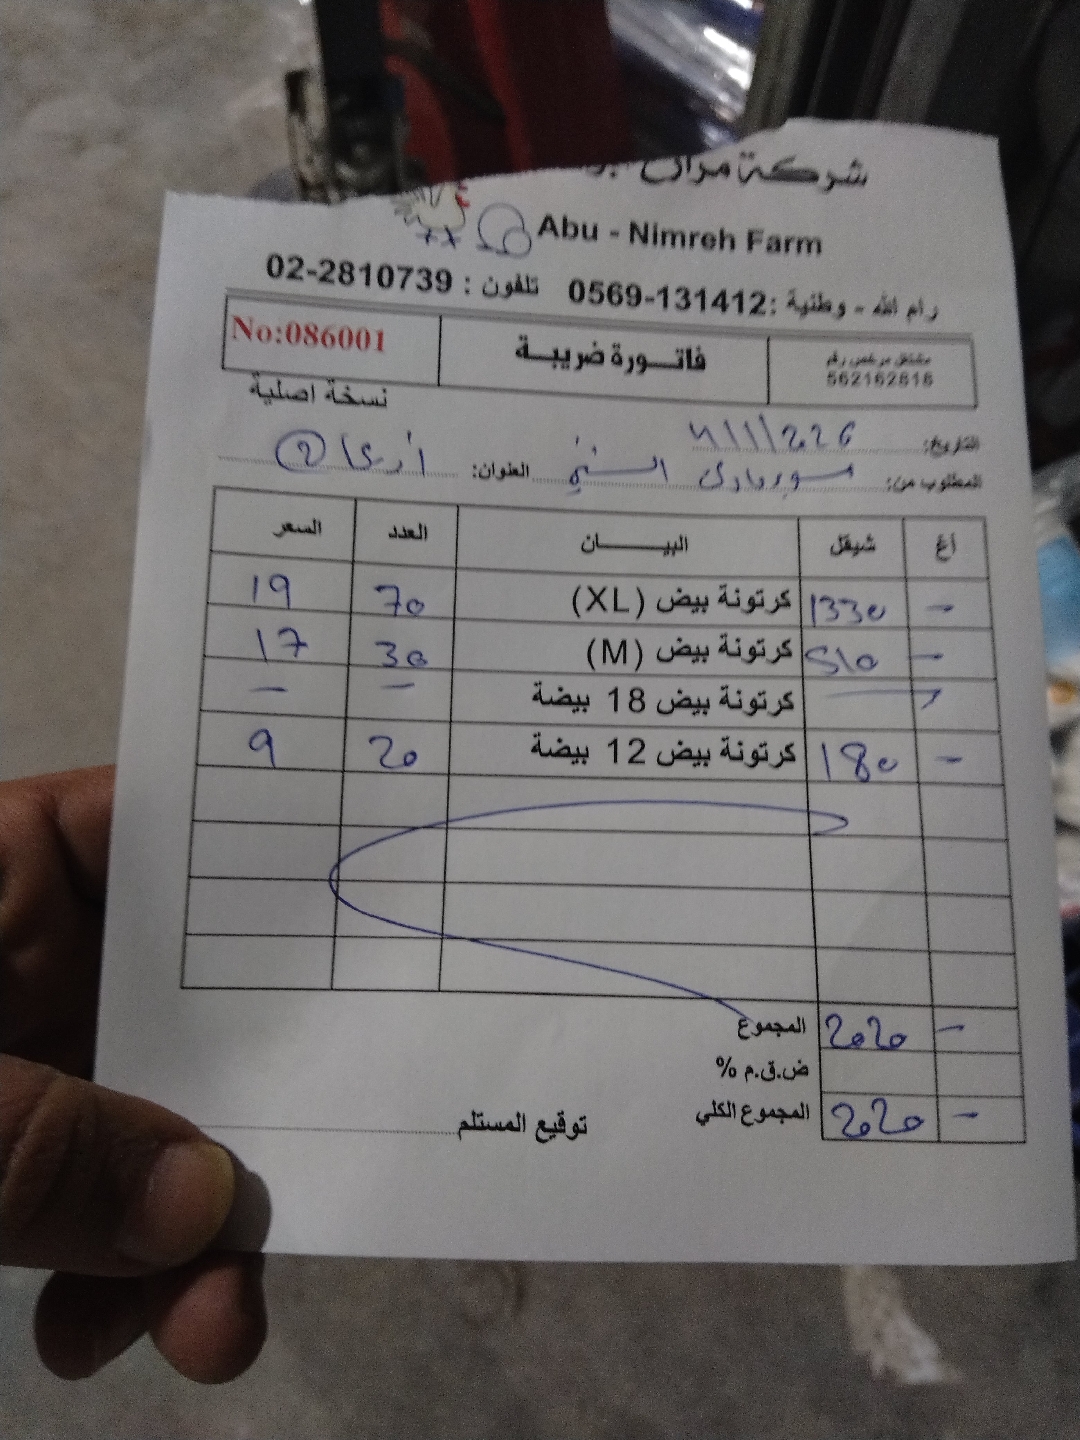 شركة مزارع
Abu - Nimreh Farm
رام الله - وطنية :0569-131412 تلفون : 02-2810739
مشتغل مرخص رقم
562162818
فاتـــورة ضريبــة
No:086001
نسخة اصلية
التاريخ: 4/1/2026
المطلوب من: سوبرماركت العنوان:
أغ شيقل البيـــــــان العدد السعر
- 1330 كرتونة بيض (XL) 70 19
- 510 كرتونة بيض (M) 30 17
كرتونة بيض 18 بيضة - -
- 180 كرتونة بيض 12 بيضة 20 9
المجموع 2020 -
ض.ق.م %
المجموع الكلي 2020 -
توقيع المستلم